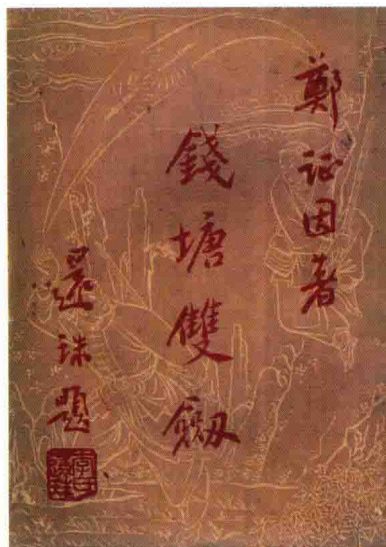 鄭证因著
錢塘雙劔
還珠題